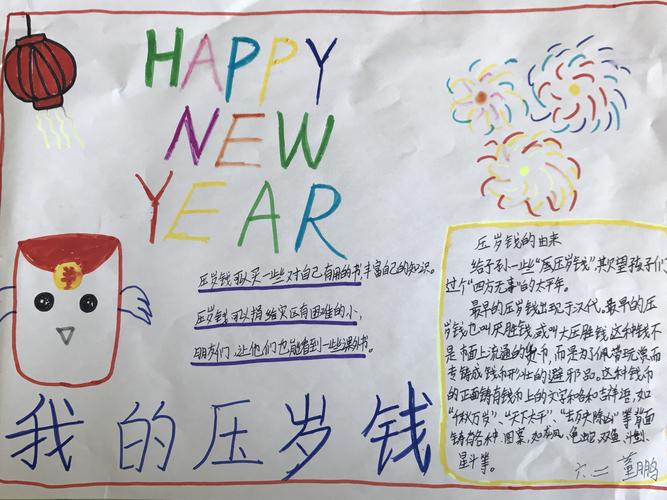 HAPPY
NEW
YEAR
压岁钱可以买一些对自己有用的书,丰富自己的知识。
压岁钱可以捐给灾区有困难的小,
朋友们,让他们也能看到一些课外书。
我的压岁钱
压岁钱的由来
给予孙一些“压岁钱”其欢望孩子们
过个“四方无事”的太平年。
最早的压岁钱出现于汉代。最早的压
岁钱也叫厌胜钱,或叫大压胜钱,这种钱不
是市面上流通的货币,而是为了佩带玩赏而
专铸成钱币形壮的避邪品。这种钱币
的正面铸有钱币上的文字和各种吉祥语,如
“千秋万岁”、“天下太平”、“去殃除凶”等背面
铸有各种图案,如龙凤、龟蛇、双鱼、斗剑、
星斗等。
六二 董鹏